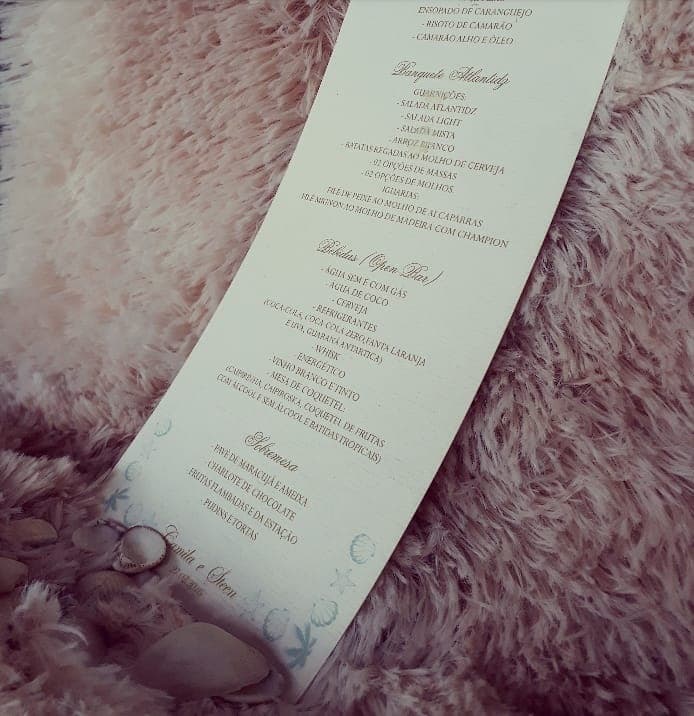 ENSOPADO DE CARANGUEJO
- RISOTO DE CAMARÃO
- CAMARÃO ALHO E ÓLEO
Banquete Atlantidz
GUARNIÇÕES:
- SALADA ATLANTIDZ
- SALADA LIGHT
- SALADA MISTA
- ARROZ BRANCO
- BATATAS REGADAS AO MOLHO DE CERVEJA
- 01 OPÇÕES DE MASSAS
- 02 OPÇÕES DE MOLHOS.
IGUARIAS:
FILÉ DE PEIXE AO MOLHO DE ALCAPARRAS
FILÉ MIGNON AO MOLHO DE MADEIRA COM CHAMPION
Bebidas (Open Bar)
- ÁGUA SEM E COM GÁS
- ÁGUA DE COCO
- CERVEJA
- REFRIGERANTES
(COCA-COLA, COCA COLA ZERO, FANTA LARANJA
E UVA, GUARANÁ ANTARTICA)
- WHISK
- ENERGÉTICO
- VINHO BRANCO E TINTO
- MESA DE COQUETEL:
(CAIPIRINHA, CAIPIROSKA, COQUETEL DE FRUTAS
COM ÁLCOOL E SEM ÁLCOOL E BATIDAS TROPICAIS)
Sobremesa
- PAVÊ DE MARACUJÁ E AMEIXA
- CHARLOTE DE CHOCOLATE
- FRUTAS FLAMBADAS E DA ESTAÇÃO
- PUDINS E TORTAS
Camila e